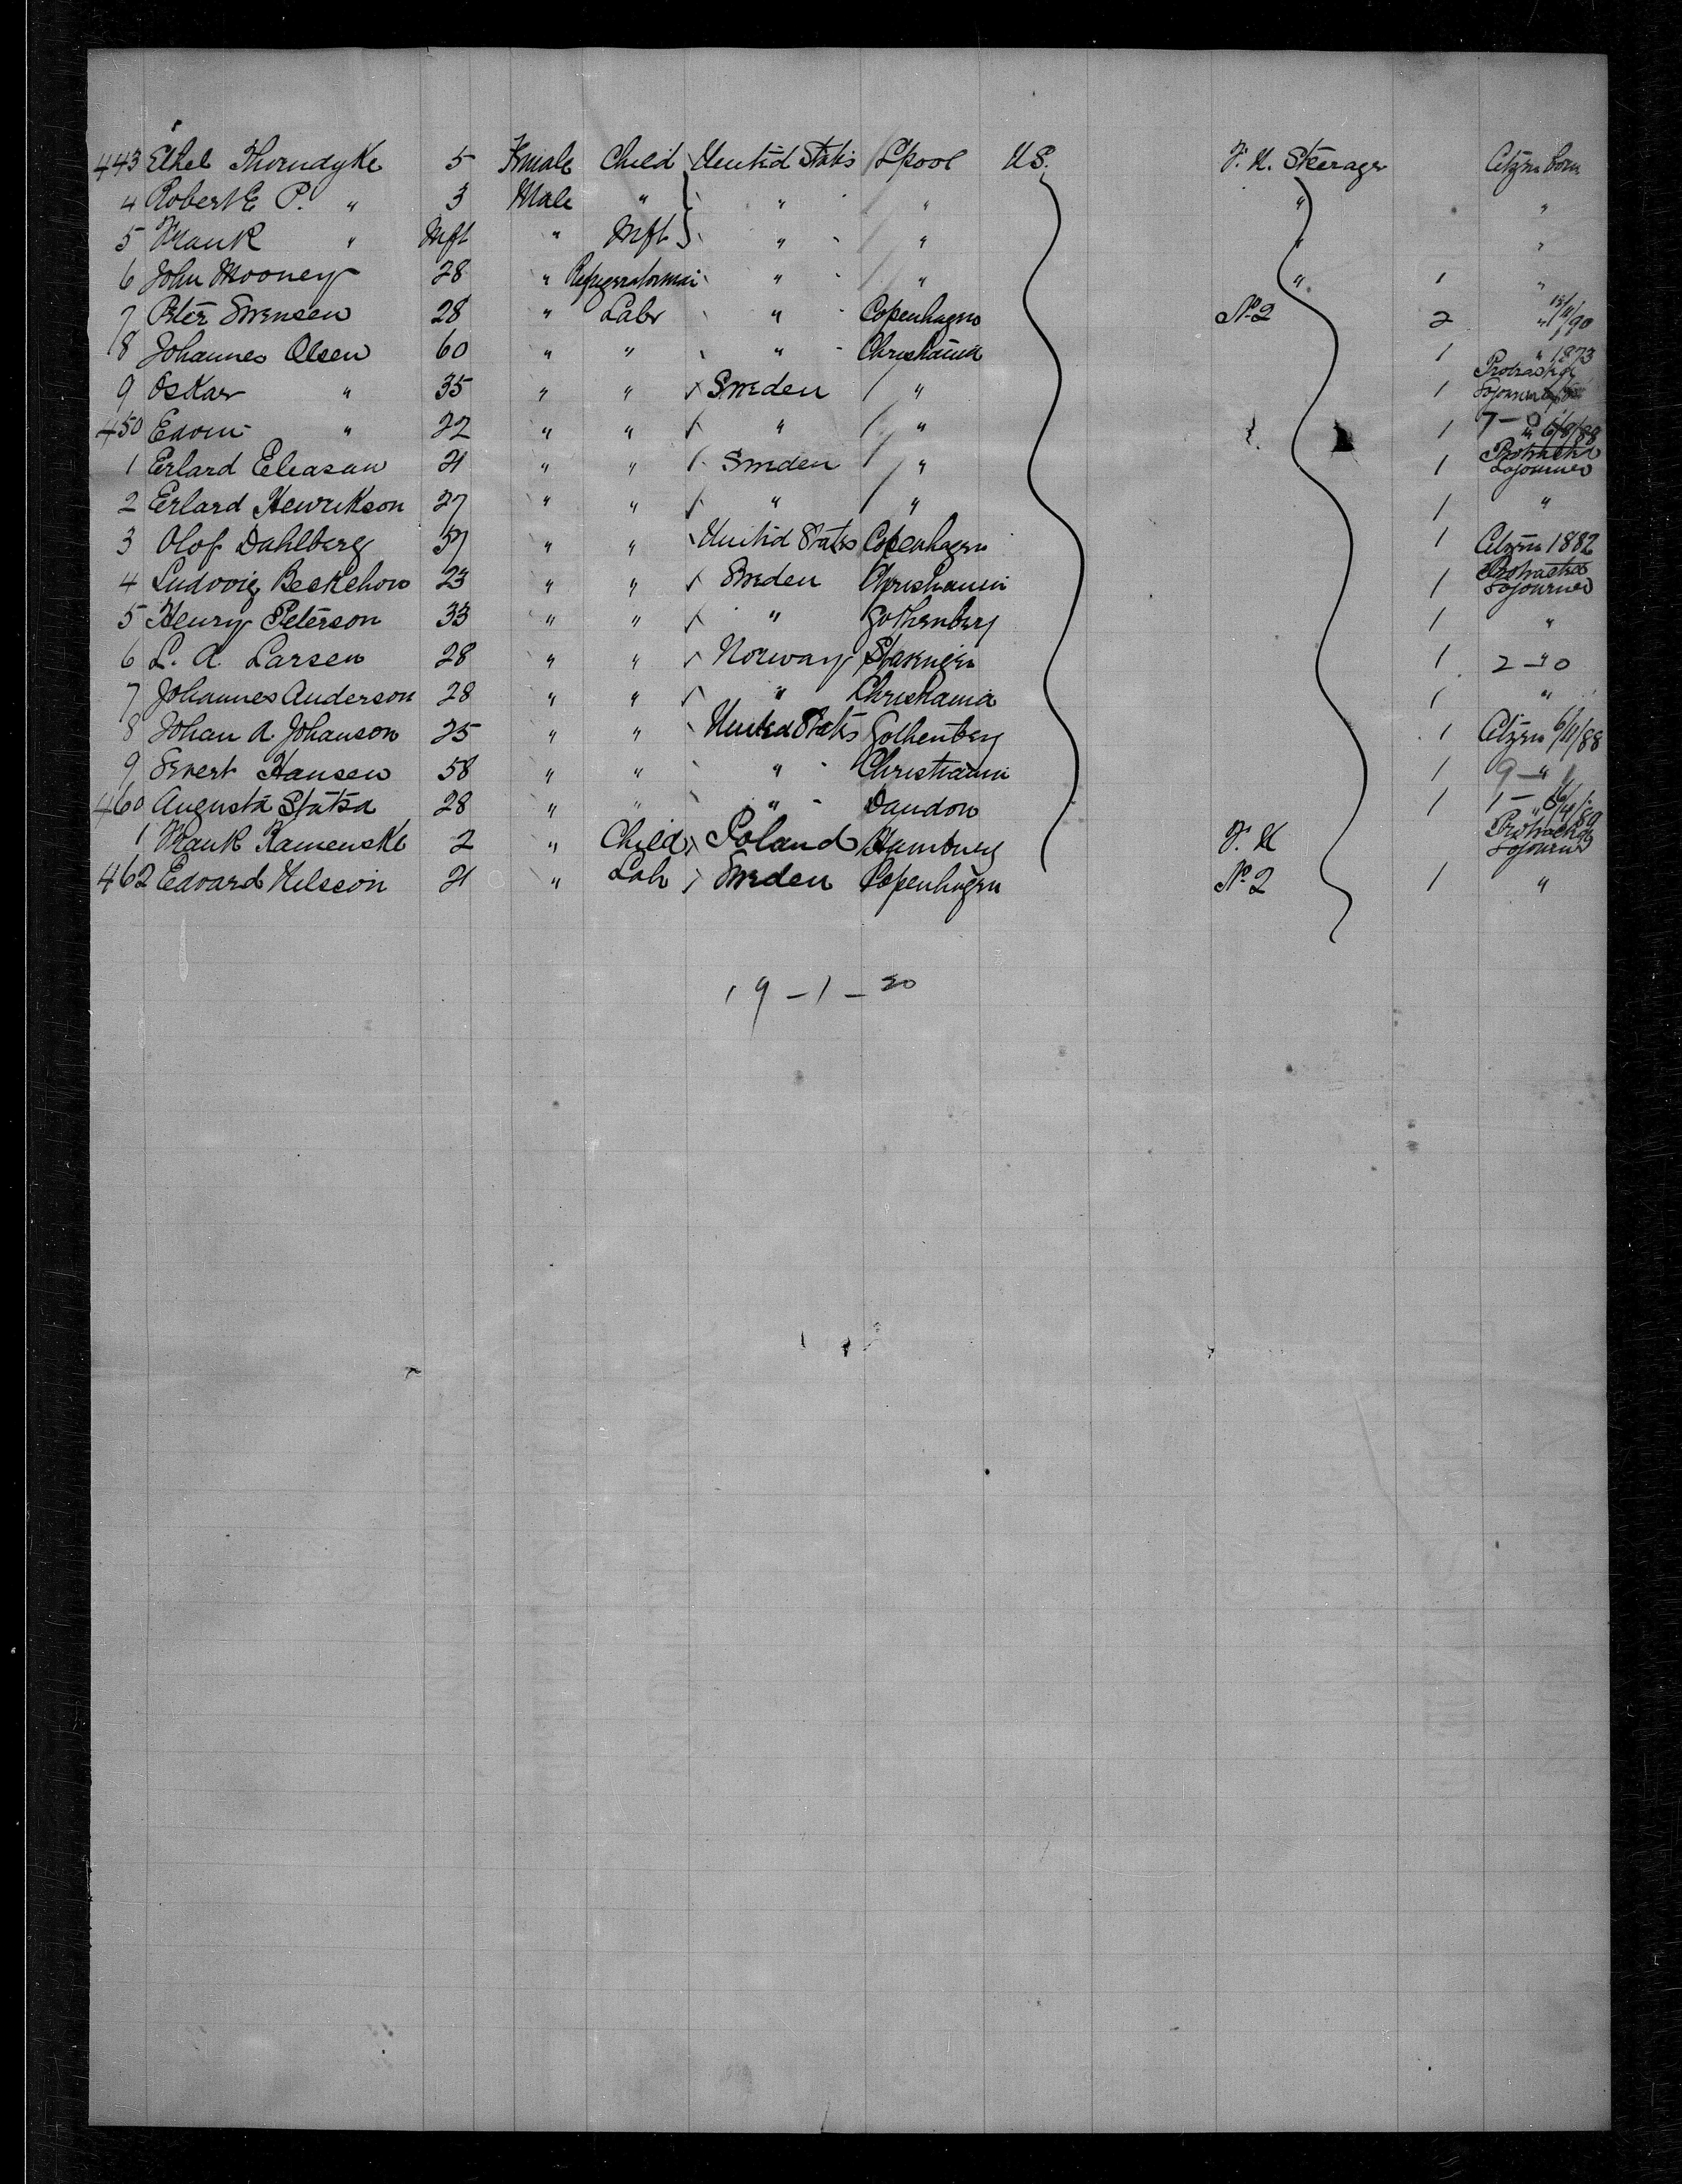 443 Ethel Thorndyke 5 Female Child United States L'pool U.S. F. H. Steerage Citizen born
4 Robert E P. " 3 Male " " " " "
5 Frank " Inft " Inft " " " "
6 John Mooney 28 " Refrigeratorman " " " 1 "
7 Peter Sorensen 28 " Labr " Copenhagen No 2 2 " /90
8 Johannes Olsen 60 " " " Christiania 1 " 1873
9 Oskar " 35 " " Sweden " 1 Protracted Sojourner
450 Edvin " 22 " " " " 1 " 6/8/88
1 Erlard Eleasan 21 " " Sweden " 1 Protracted Sojourner
2 Erlard Henrikson 27 " " " " 1 "
3 Olof Dahlberg 37 " " United States Copenhagen 1 Citizen 1882
4 Ludvvig 23 " " Sweden Christiania 1 Protracted Sojourner
5 Henry Peterson 33 " " " Gothenberg 1 "
6 L. A. Larsen 28 " " Norway Stavenger 1 2 - " 0
7 Johannes Anderson 28 " " " Christiania 1 "
8 Johan A. Johanson 25 " " United States Gothenberg 1 Citizen 6/11/88
9 Hansen 58 " " " Christiania 1 9 - "
460 Augusta 28 " " " 1 1 - "
1 Frank Kamenske 2 " Child Poland Hamburg F. H Protracted Sojourner
462 Edvard Nilsson 21 " Lab Sweden Copenhagen No 2 1 "
19 - 1 - 20